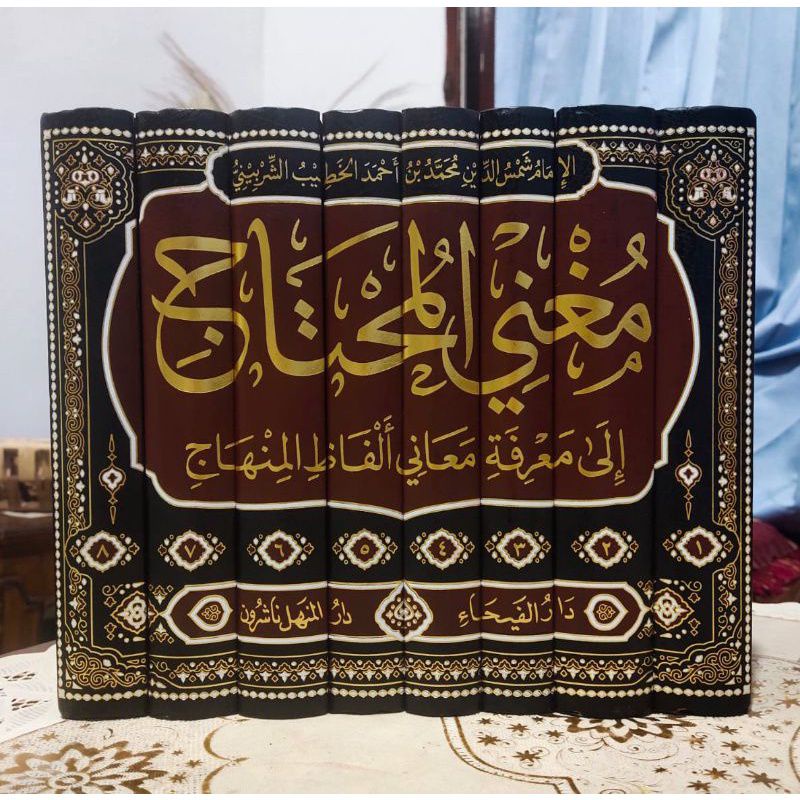 الإِمَامُ شَمْسُ الدِّينِ مُحَمَّدُ بْنُ أَحْمَدَ الخَطِيبُ الشِّرْبِينِيُّ
مُغْنِي المُحْتَاجِ
إِلَى مَعْرِفَةِ مَعَانِي أَلْفَاظِ المِنْهَاجِ
١ ٢ ٣ ٤ ٥ ٦ ٧ ٨
دَارُ الفَيْحَاء دَارُ المَنْهَل نَاشِرُون